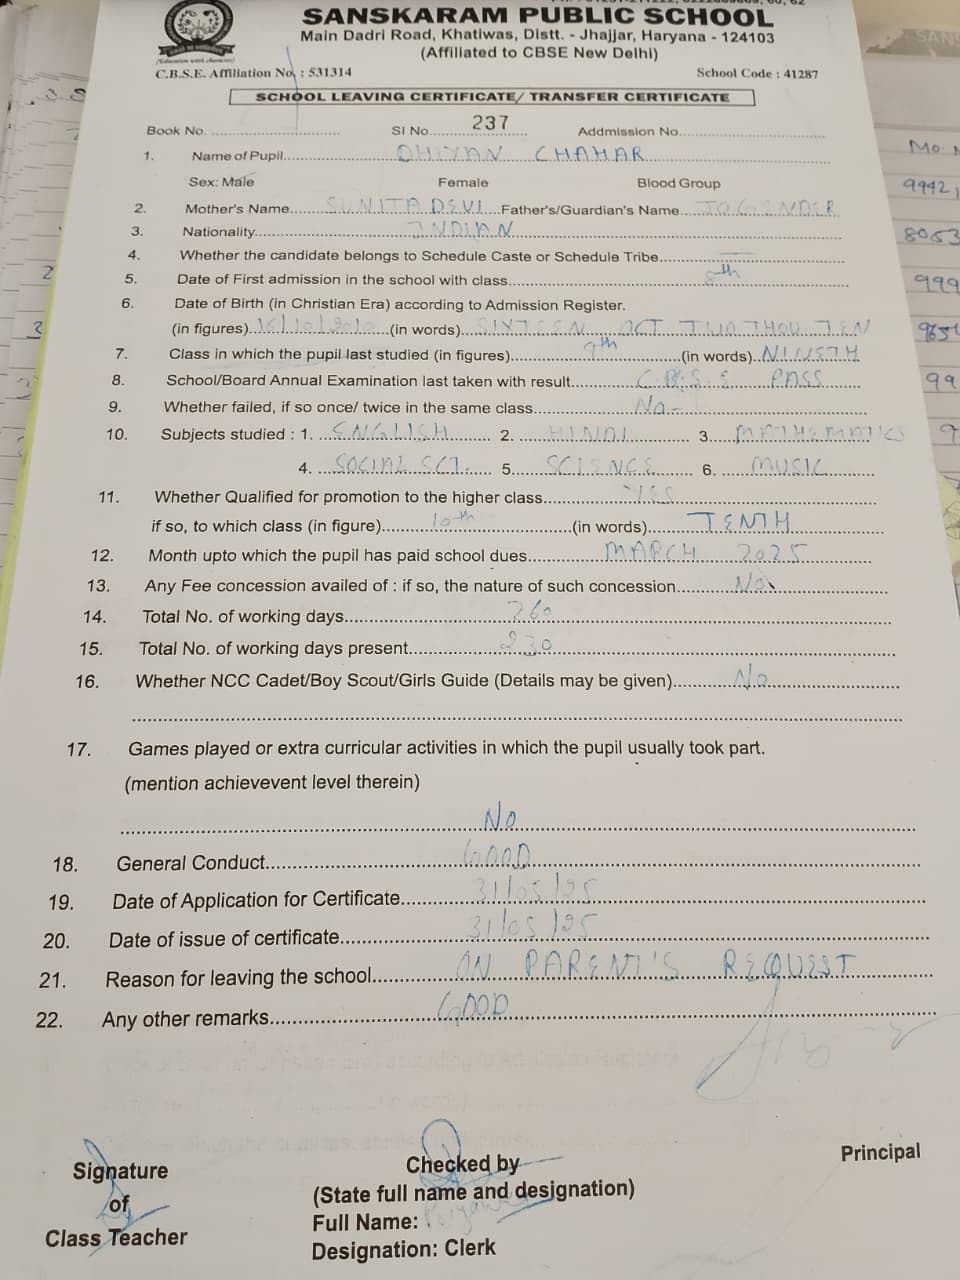 SANSKARAM PUBLIC SCHOOL
Main Dadri Road, Khatiwas, Distt. - Jhajjar, Haryana - 124103
(Affiliated to CBSE New Delhi)
C.B.S.E. Affiliation No. : 531314 School Code : 41287
SCHOOL LEAVING CERTIFICATE/ TRANSFER CERTIFICATE
Book No. Sl No. 237 Addmission No.
1. Name of Pupil DHIYAN CHAHAR
Sex: Male Female Blood Group
2. Mother's Name SUNITA DEVI Father's/Guardian's Name JOGENDER
3. Nationality INDIAN
4. Whether the candidate belongs to Schedule Caste or Schedule Tribe
5. Date of First admission in the school with class 8th
6. Date of Birth (in Christian Era) according to Admission Register.
(in figures) 16/10/2010 (in words) SIXTEEN OCT TWO THOU TEN
7. Class in which the pupil last studied (in figures) 9th (in words) NINETH
8. School/Board Annual Examination last taken with result C.B.S.E PASS
9. Whether failed, if so once/ twice in the same class No -
10. Subjects studied : 1. ENGLISH 2. HINDI 3. MATHEMATICS
4. SOCIAL SCI. 5. SCIENCE 6. MUSIC
11. Whether Qualified for promotion to the higher class YES
if so, to which class (in figure) 10th (in words) TENTH
12. Month upto which the pupil has paid school dues MARCH 2025
13. Any Fee concession availed of : if so, the nature of such concession No
14. Total No. of working days 260
15. Total No. of working days present 230
16. Whether NCC Cadet/Boy Scout/Girls Guide (Details may be given) No
17. Games played or extra curricular activities in which the pupil usually took part.
(mention achievevent level therein)
No
18. General Conduct GOOD
19. Date of Application for Certificate 31/05/25
20. Date of issue of certificate 31/05/25
21. Reason for leaving the school ON PARENT'S REQUEST
22. Any other remarks GOOD
Signature Checked by Principal
of (State full name and designation)
Class Teacher Full Name:
Designation: Clerk